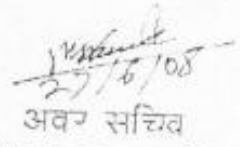 27/6/08
अवर सचिव